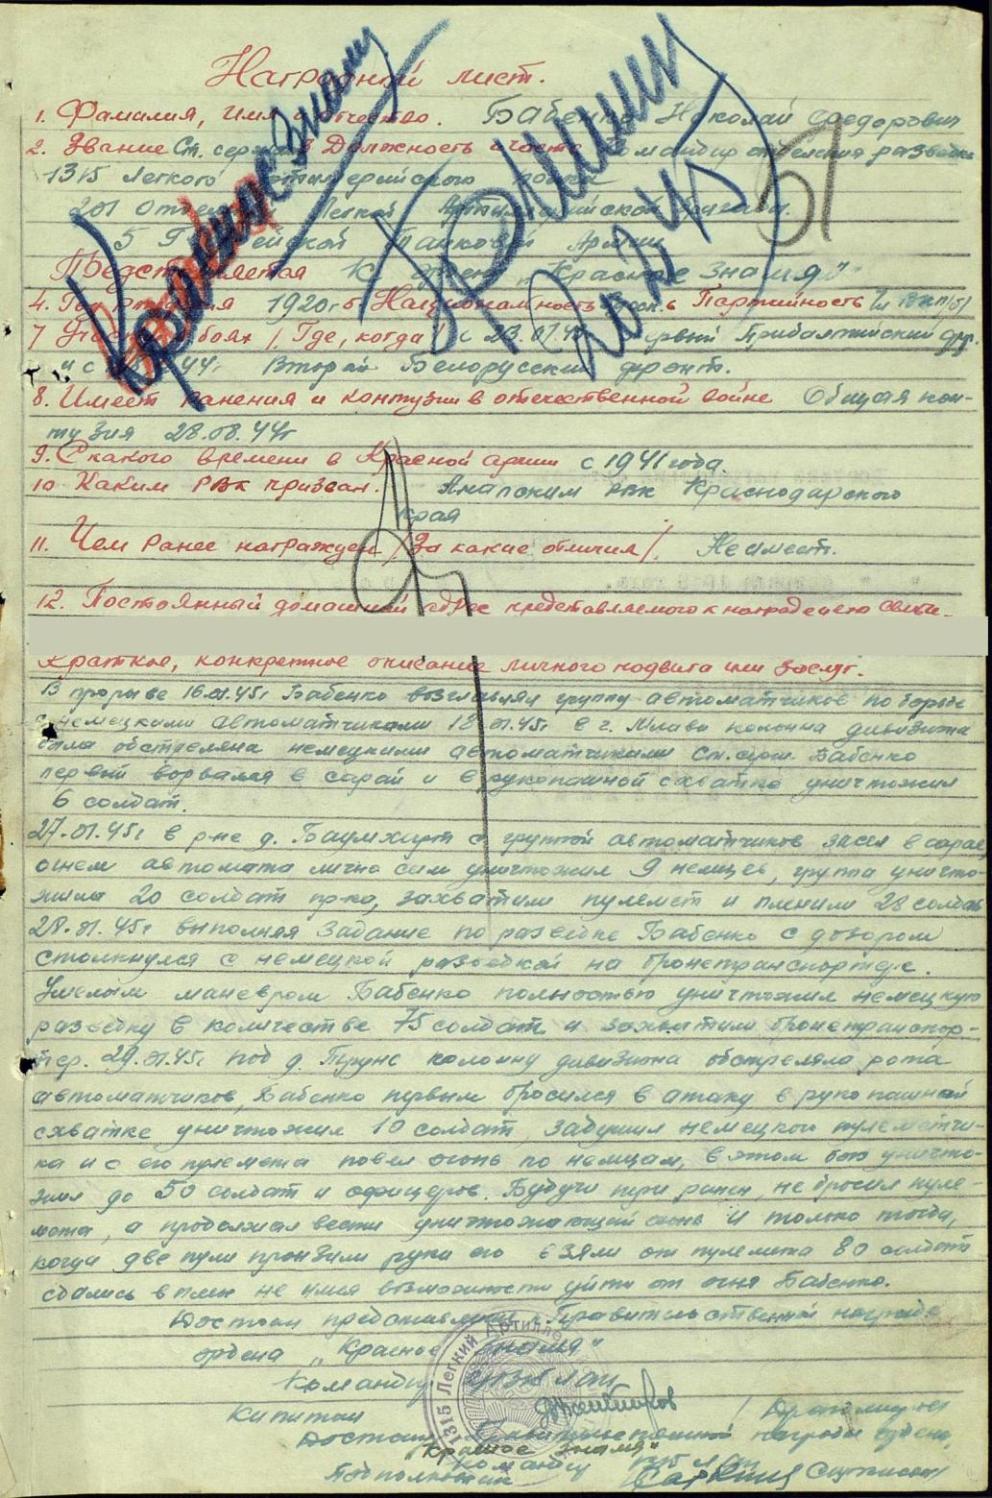 Наградной лист.
1. Фамилия, имя и отчество. Бабенко Николай Федорович
2. Звание Ст. сержант Должность и часть командир отделения разведки
1315 Легкого Артиллерийского полка
201 Отдельной Легкой Артиллерийской бригады.
5 Гвардейской Танковой Армии
Представляется К ордену "Красное Знамя"
4. Год рождения 1920г. 5 Национальность 6 Партийность Чл ВКП(б)
7 Участие в боях / Где, когда / с первый Прибалтийский фр.
и с 44г Второй Белорусский фронт.
8. Имеет ранения и контузии в отечественной войне Общая кон-
тузия 28.08.44г
9. С какого времени в Красной армии с 1941 года.
10 Каким РВК призван. Анапским рвк Краснодарского
края
11. Чем ранее награжден / За какие отличия /. Не имеет.
12. Постоянный домашний адрес представляемого к награде и его семьи-
Краткое, конкретное описание личного подвига или заслуг.
В прорыве 16.01.45г Бабенко возглавлял группу автоматчиков по борьбе
с немецкими автоматчиками 18.01.45г в г. Млава колонна дивизиона
была обстреляна немецкими автоматчиками Ст. серж. Бабенко
первый ворвался в сарай и в рукопашной схватке уничтожил
6 солдат.
27.01.45г в р-не д. с группой автоматчиков засел в сарае,
огнем автомата лично сам уничтожил 9 немцев, группа уничто-
жила 20 солдат пр-ка, захватили пулемет и пленили 28 солдат
28.01.45г выполняя задание по разведке Бабенко с дозором
столкнулся с немецкой разведкой на бронетранспортере.
Умелым маневром Бабенко полностью уничтожил немецкую
разведку в количестве 75 солдат и захватили бронетранспор-
тер. 29.01.45г под д. колонну дивизиона обстреляла рота
автоматчиков, Бабенко первым бросился в атаку в рукопашной
схватке уничтожил 10 солдат, задушил немецкого пулеметчи-
ка и с его пулемета повел огонь по немцам, в этом бою уничто-
жил до 50 солдат и офицеров. Будучи ранен, не бросил пуле-
мета, а продолжал вести уничтожающий огонь и только тогда,
когда две пули пронзили руки его взяли от пулемета 80 солдат
сдались в плен не имея возможности уйти от огня Бабенко.
Достоин представления к Правительственной награде
ордена "Красное Знамя"
Командир
Капитан
Достоин Правительственной награды ордена
"Красное Знамя"
Командир
Подполковник
1315 Легкий Артилле
Красное Знамя